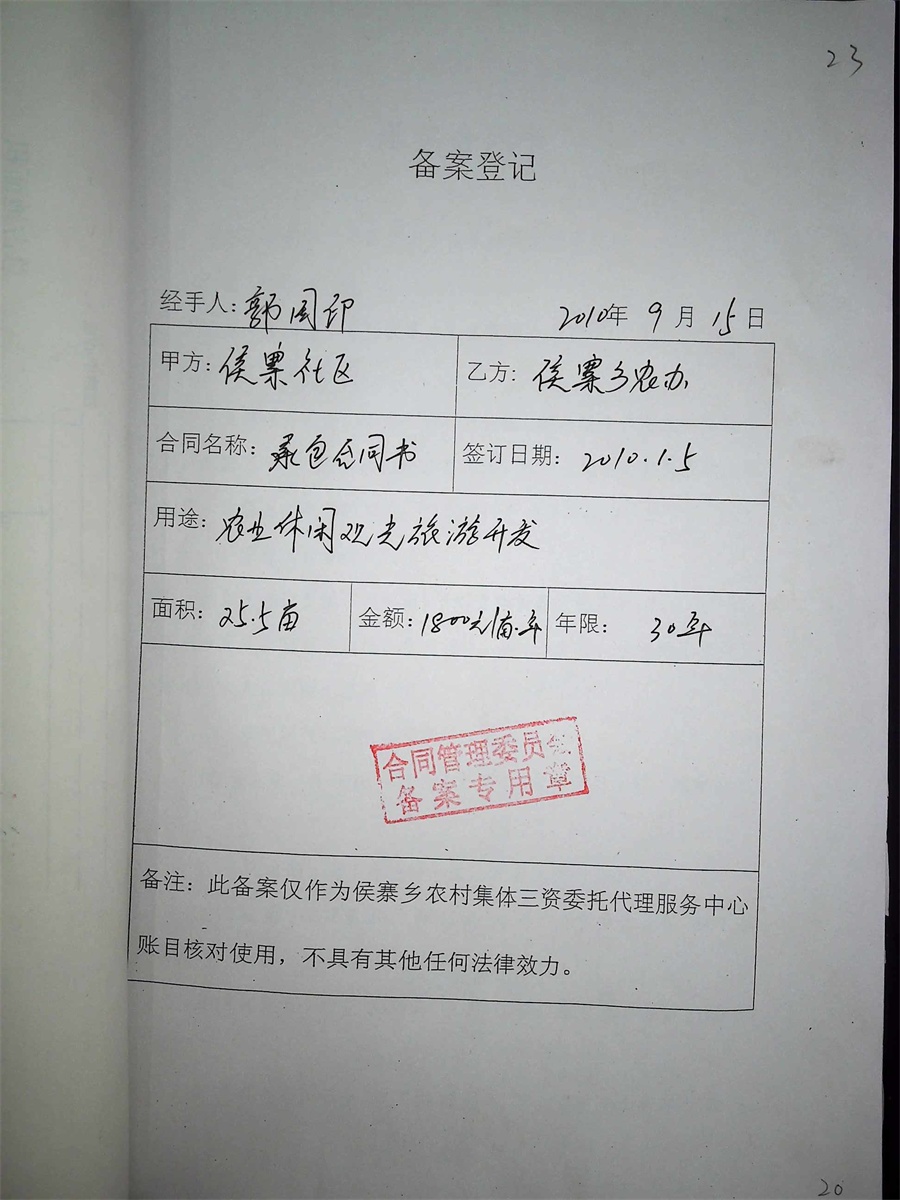 23
备案登记
经手人:郭国印 2010年 9月 15日
甲方:侯寨社区 乙方:侯寨乡农办
合同名称:承包合同书 签订日期:2010.1.5
用途:农业休闲观光旅游开发
面积:25.5亩 金额:1800元/亩.年 年限:30年
合同管理委员会
备案专用章
备注:此备案仅作为侯寨乡农村集体三资委托代理服务中心
账目核对使用，不具有其他任何法律效力。
20